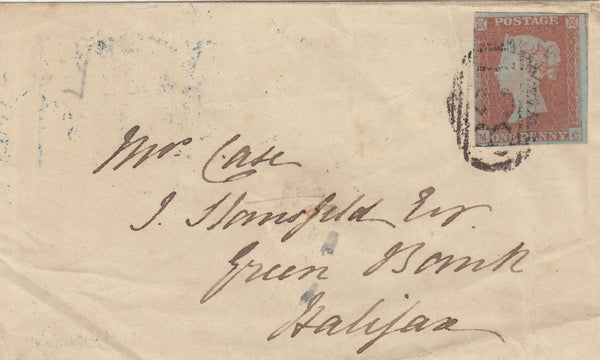 POSTAGE
M ONE PENNY C
Mrs. Case
J. Stansfeld Esqr.
Green Bank
Halifax